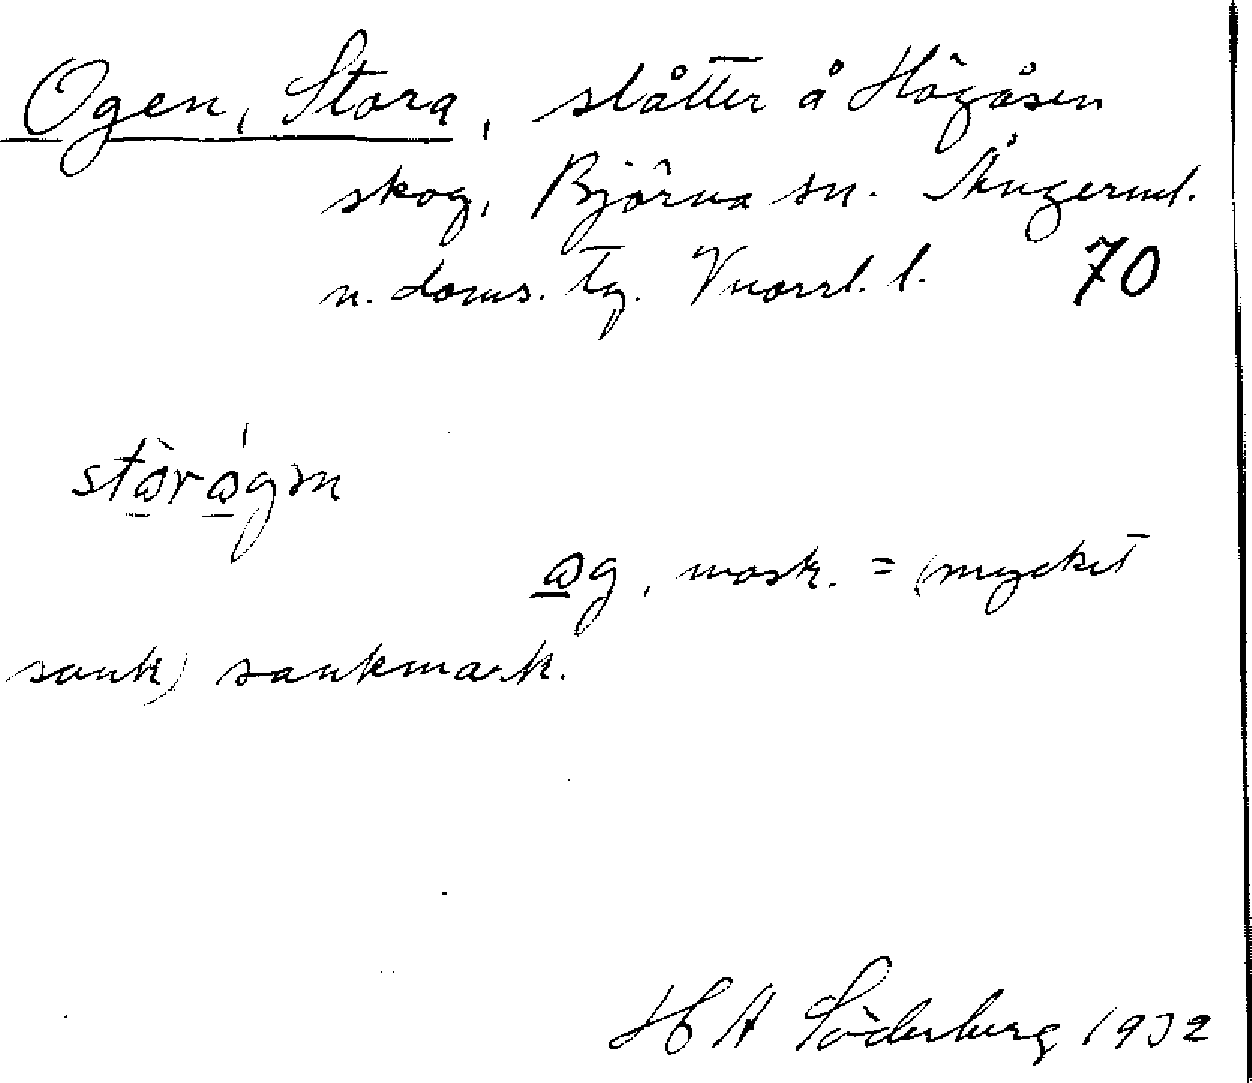 Ogen, Stora, slåtter å Högåsen
skog, Björna sn. Ångerml.
n. doms. tg. Vnorrl. l. 70
mask. = (mycket
sank) sankmark.
H A Söderberg 1932